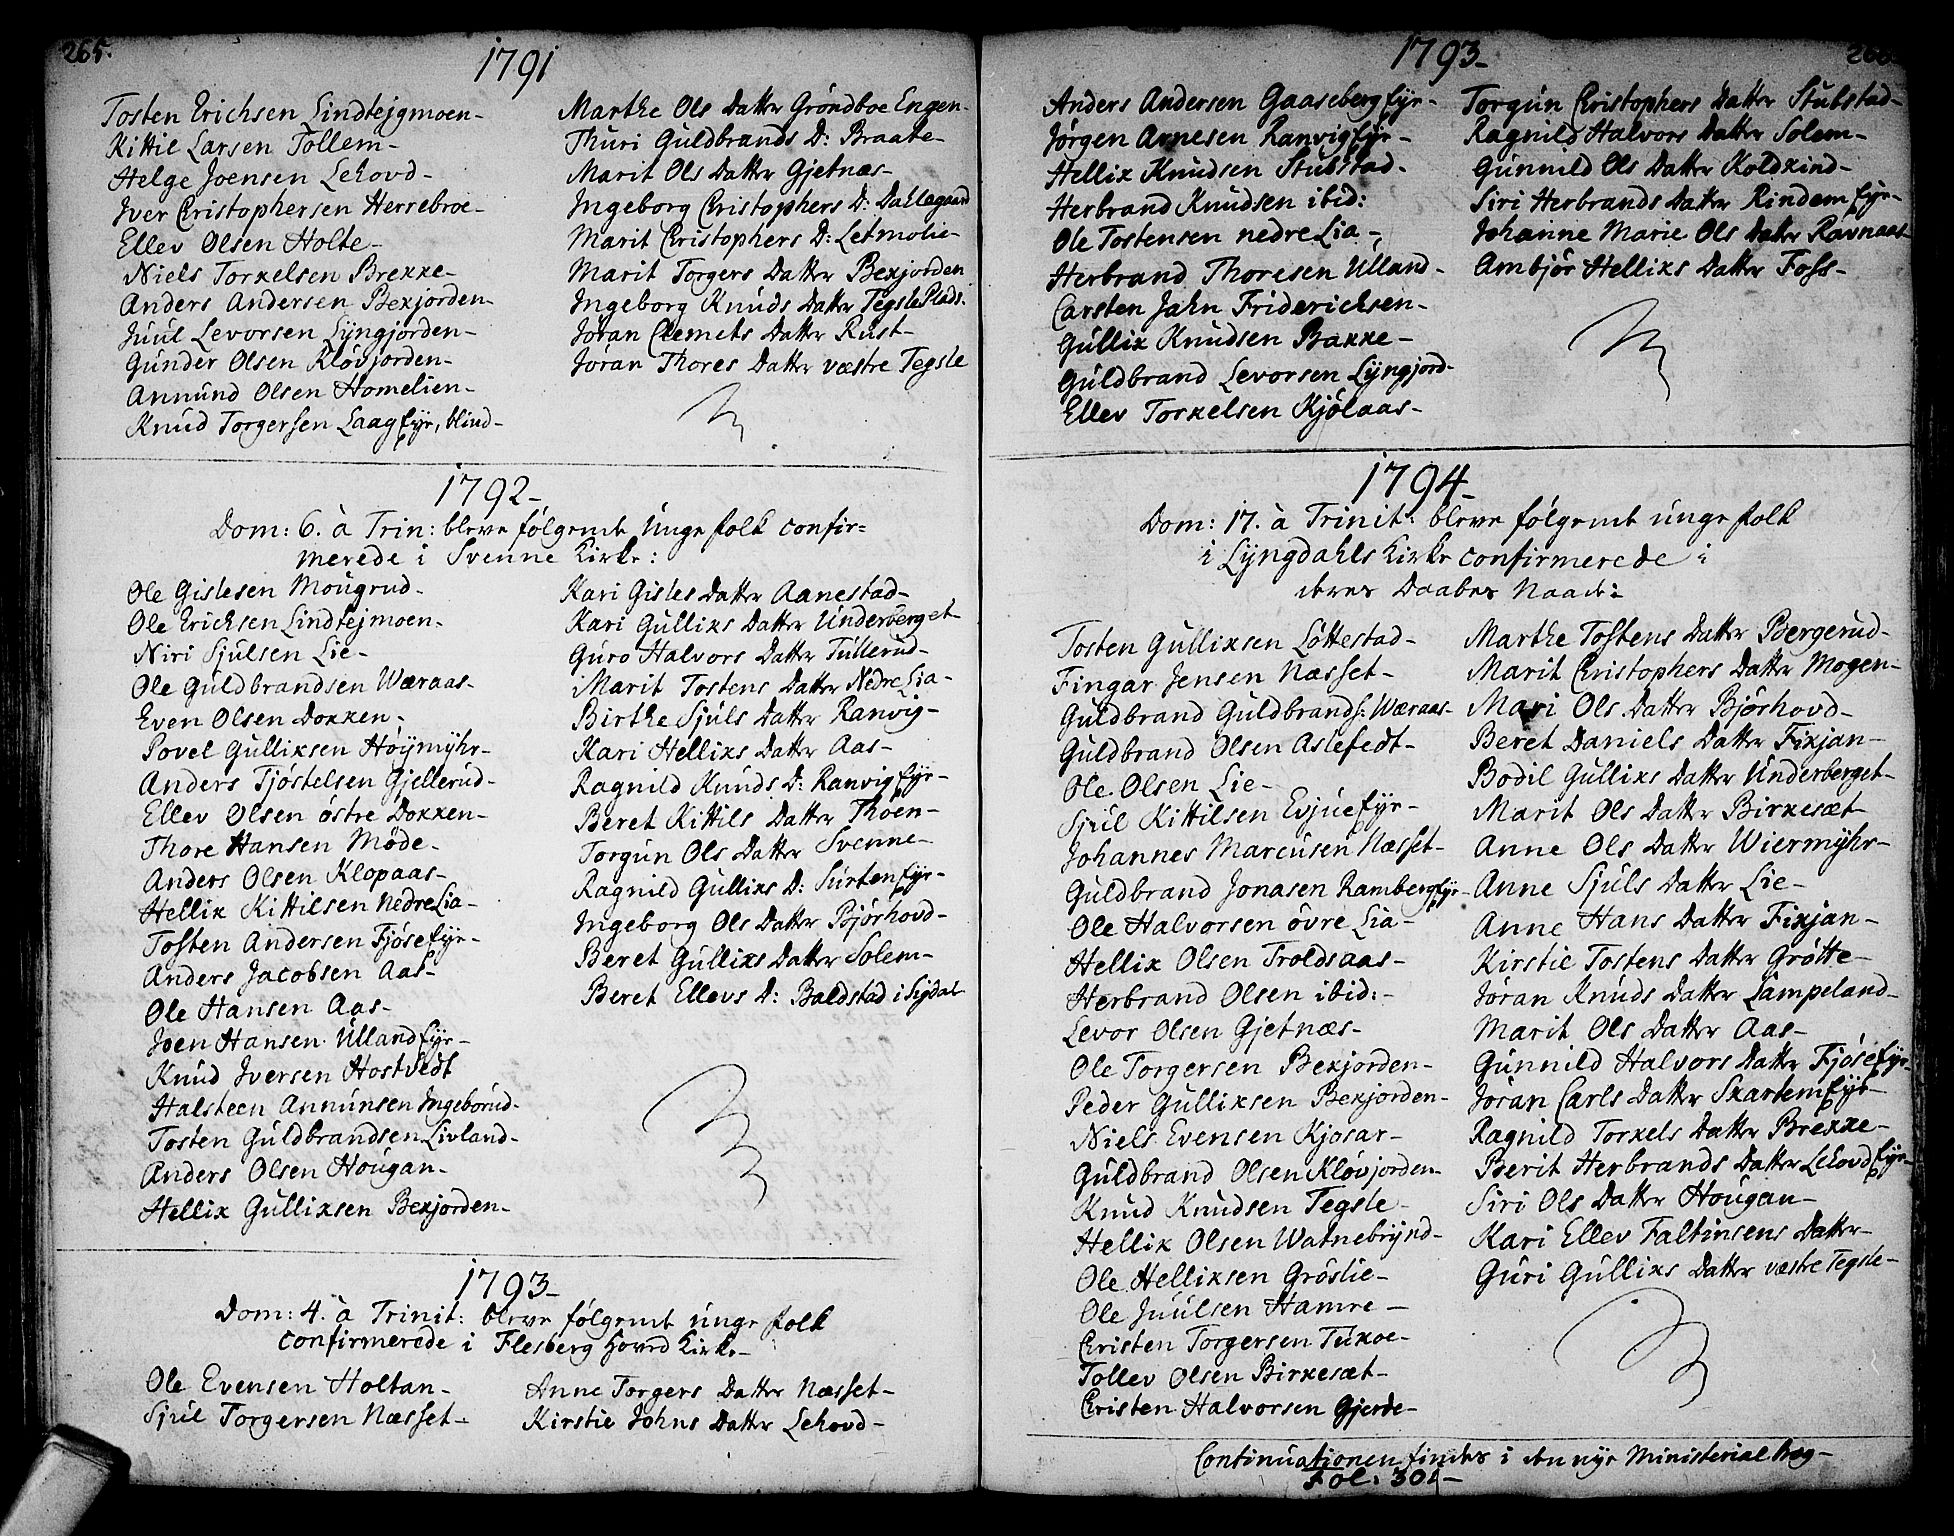 265.
1791
Tosten Erichsen Lindtejgmoen-
Kittil Larsen Tollem-
Helge Joensen Lehovd-
Iver Christophersen Herrebroe-
Ellev Olsen Holte-
Niels Torkelsen Brekke-
Anders Andersen Bekjorden-
Juul Levorsen Lyngjorden-
Gunder Olsen Kløvjorden-
Annund Olsen Homelien-
Knud Torgersen Laag fyr, blind-
Marthe Ols Datter Grøndboe Engen-
Thuri Guldbrands D: Braate-
Marit Ols Datter Gjetnæs-
Ingeborg Christophers D: Dahlegaard
Marit Christophers D: Letmolie-
Marit Torgers Datter Bekjorden
Ingeborg Knuds Datter Tegsle Plads.
Jøran Clemets Datter Rust-
Jøran Thores Datter væstre Tegsle
1792-
Dom: 6. à Trin: bleve følgende Unge folk confir=
merede i Svenne Kirke:
Ole Gislesen Mougrud-
Ole Erichsen Lindtejmoen-
Niri Sjulsen Lie-
Ole Guldbrandsen Wæraas-
Even Olsen Dokken-
Povel Gulliksen Høymyhr-
Anders Tjøstelsen Gjellerud-
Ellev Olsen østre Dokken-
Thore Hansen Møde-
Anders Olsen Klopaas-
Hellik Kittilsen Nedre Lia-
Tosten Andersen Fjøse fyr-
Anders Jacobsen Aas-
Ole Hansen Aas-
Joen Hansen Ulland fyr-
Knud Iversen Hostvedt
Halsteen Annunsen Ingeborud-
Tosten Guldbrandsen Livland-
Anders Olsen Hougan-
Hellik Gulliksen Bekjorden-
Kari Gisles Datter Aanestad-
Kari Gulliks Datter Underberget
Guro Halvors Datter Tullerud-
Marit Tostens Datter Nedre Lia-
Birthe Sjuls Datter Ranvig-
Kari Helliks Datter Aas-
Ragnild Knuds D: Ranvig fyr-
Beret Kittils Datter Thoen-
Torgun Ols Datter Svenne-
Ragnild Gulliks D: Surten fyr-
Ingeborg Ols Datter Bjørhovd-
Beret Gulliks Datter Solem-
Beret Ellevs D: Baldstad i Sigdal
1793-
Dom: 4. à Trinit: bleve følgende unge folk
confirmerede i Flesberg Hoved Kirke-
Ole Evensen Holtan-
Sjul Torgersen Næsset-
Anne Torgers Datter Næsset-
Kirstie Johns Datter Lehovd-
1793-
Anders Andersen Gaaseberg fyr-
Jørgen Arnesen Ranvig fyr-
Hellik Knudsen Stubstad-
Herbrand Knudsen ibid:
Ole Tostensen nedre Lia-
Herbrand Thoresen Ulland-
Carsten Jahn Friderichsen-
Gullik Knudsen Bakke-
Guldbrand Levorsen Lyngjord-
Ellev Torkelsen Kjølaas-
Torgun Christophers Datter Stubstad-
Ragnild Halvors Datter Solem-
Gunnild Ols Datter Koldkind-
Siri Herbrands Datter Rindem fyr-
Johanne Marie Ols Datter Ravnaas-
Ambjør Helliks Datter Foss-
1794-
Dom: 17. à Trinit: bleve følgende unge folk
i Lyngdahls Kirke confirmerede i
deres Daabes Naade:
Tosten Gulliksen Løttestad-
Fingar Jensen Næsset-
Guldbrand Guldbrands: Wæraas-
Guldbrand Olsen Aslefedt-
Ole Olsen Lie-
Sjul Kittilsen Evjue fyr-
Johannes Marcusen Næsset-
Guldbrand Jonasen Ramberg fyr-
Ole Halvorsen øvre Lia-
Hellik Olsen Troldsaas-
Herbrand Olsen ibid:-
Levor Olsen Gjetnæs-
Ole Torgersen Bekjorden-
Peder Gulliksen Bekjorden-
Niels Evensen Kjosar-
Guldbrand Olsen Kløvjorden-
Knud Knudsen Tegsle-
Hellik Olsen Watnebrynd-
Ole Helliksen Grøslie-
Ole Juulsen Hamre-
Cristen Torgersen Tukoe-
Tollev Olsen Birkesæt-
Cristen Halvorsen Gjerde-
Marthe Tostens Datter Bergerud-
Marit Christophers Datter Mogen-
Mari Ols Datter Bjørhovd-
Beret Daniels Datter Fikjan-
Bodil Gulliks Datter Underberget-
Marit Ols Datter Birkesæt
Anne Ols Datter Wiermyhr-
Anne Sjuls Datter Lie-
Anne Hans Datter Fikjan-
Kirstie Tostens Datter Grøtte-
Jøran Knuds Datter Lampeland-
Marit Ols Datter Aas-
Gunnild Halvors Datter Fjøse fyr-
Jøran Carls Datter Skartem fyr-
Ragnild Torkels Datter Brekke-
Berit Herbrands Datter Lehovd fyr-
Siri Ols Datter Hougan-
Kari Ellev Faltinsens Datter-
Guri Gulliks Datter væstre Tegsle-
Continuationen findes i den nye Ministerial bog-
Fol: 301-